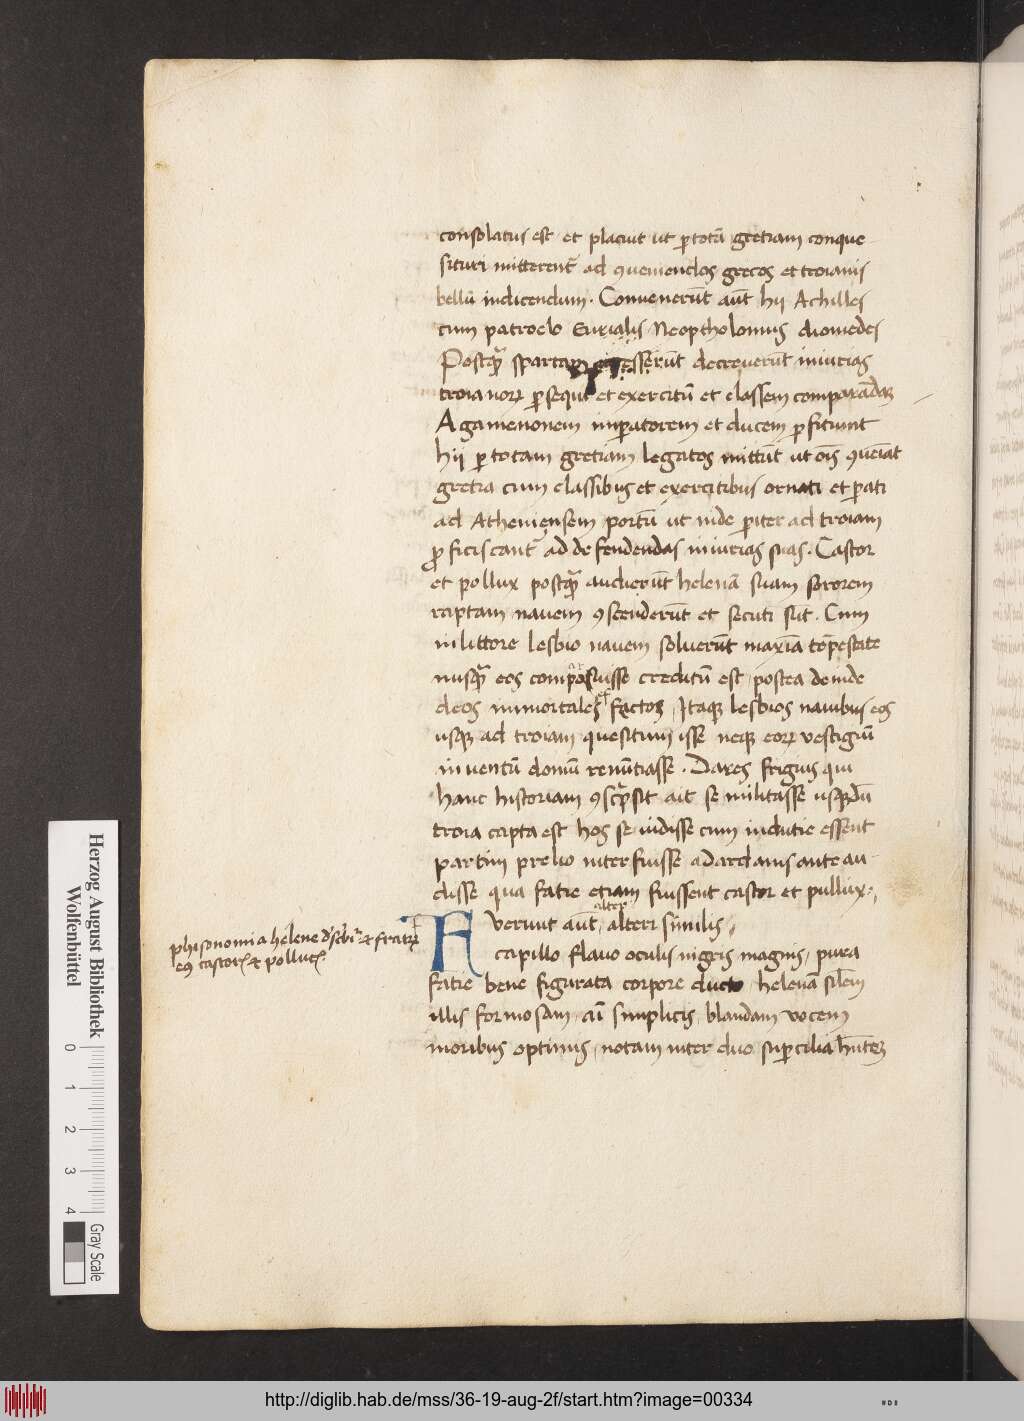 consolatus est et placuit ut ꝑ totā gretiam conque
situri mitterent᷑ ad ꝯueniendos grecos et troianis
bellū indicendum. Convenerūt aūt hij Achilles
cum patroclo Eurialis Neoptholomus diomedes
Postqᷓ spartam esserūt decreverūt iniurias
troianoꝝ ꝑsequi et exercitū et classem comparādaꝫ
Agamenonem imꝑatorem et ducem ꝑfitiunt
hij ꝑ totam gretiam legatos mittūt ut oīs ꝯueīat
gretia cum classibus et exercitibus ornati et ꝑati
ad Atheniensem portū ut inde ꝑiter ad troiam
ꝓficiscant᷑ ad defendendas iniurias suas. Castor
et pollux postqᷓ audierūt helenā suam sororem
raptam navem ꝯscenderūt et secuti sūt. Cum
in littore lesbio navem solverūt maxīa tēpestate
nusqᷓ eos fuisse creditū est postea deinde
deos immortales factos, Itaqꝫ lesbios navibus eos
usqꝫ ad troiam quesitum isse neqꝫ eoꝝ vestigiū
inventū domū renūtiasse. Dares frigius qui
hanc historiam ꝯscᷓpsit ait se militasse usqꝫ dū
troia capta est hos se uidisse cum indutie essent
partim prelio interfuisse a Dardanis ante au-
disse qua fatie etiam fuissent castor et pullux;
Fuerunt aūt alter alteri similis,
capillo flavo oculis nigris magnis, pura
fatie bene figurata corpore ducto helenā sil̄em
illis formosam, aī simplicis, blandam vocem
moribus optimis, notam inter duo suꝑcilia hn̄teꝫ
phisonomia helene et fratꝝ
eꝯ castorꝭ et pollucꝭ
Herzog August Bibliothek
Wolfenbüttel
0 1 2 3 4
Gray Scale
http://diglib.hab.de/mss/36-19-aug-2f/start.htm?image=00334